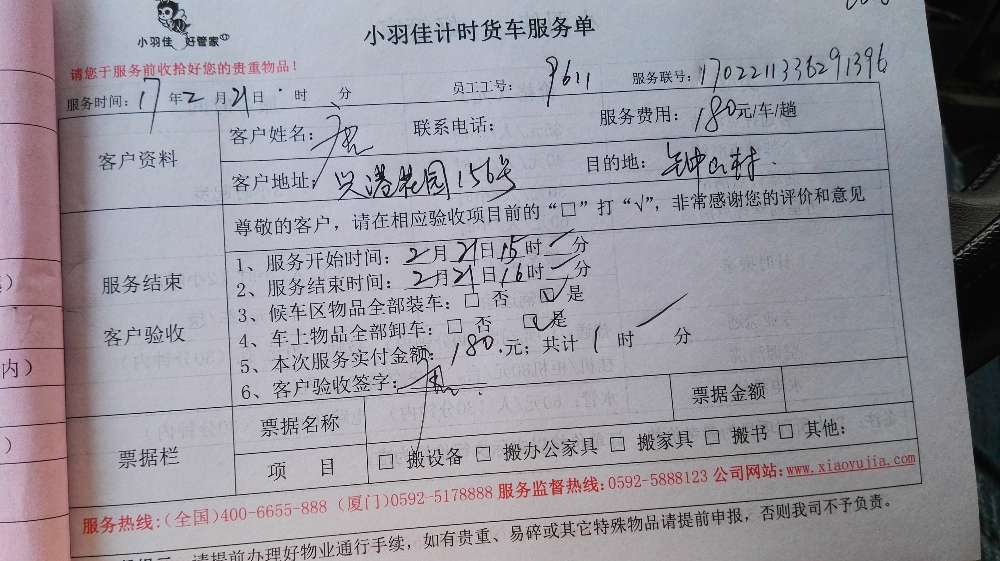 小羽佳 好管家
小羽佳计时货车服务单
请您于服务前收拾好您的贵重物品!
服务时间: 17 年 2 月 21 日 时 分 员工工号: 9611 服务联号: 1702211336291396
客户资料
客户姓名: 联系电话: 服务费用: 180元/车/趟
客户地址: 兴港花园156号 目的地: 钟山村
服务结束
客户验收
尊敬的客户，请在相应验收项目前的“□”打“√”，非常感谢您的评价和意见
1、服务开始时间: 2月21日15时 分
2、服务结束时间: 2月21日16时 分
3、候车区物品全部装车: □ 否 ☑ 是
4、车上物品全部卸车: □ 否 ☑ 是
5、本次服务实付金额: 180.元; 共计 1 时 分
6、客户验收签字:
票据栏
票据名称 票据金额
项 目 □ 搬设备 □ 搬办公家具 □ 搬家具 □ 搬书 □ 其他:
服务热线:(全国)400-6655-888 (厦门)0592-5178888 服务监督热线:0592-5888123 公司网站:www.xiaoyujia.com
请提前办理好物业通行手续，如有贵重、易碎或其它特殊物品请提前申报，否则我司不予负责。
内)